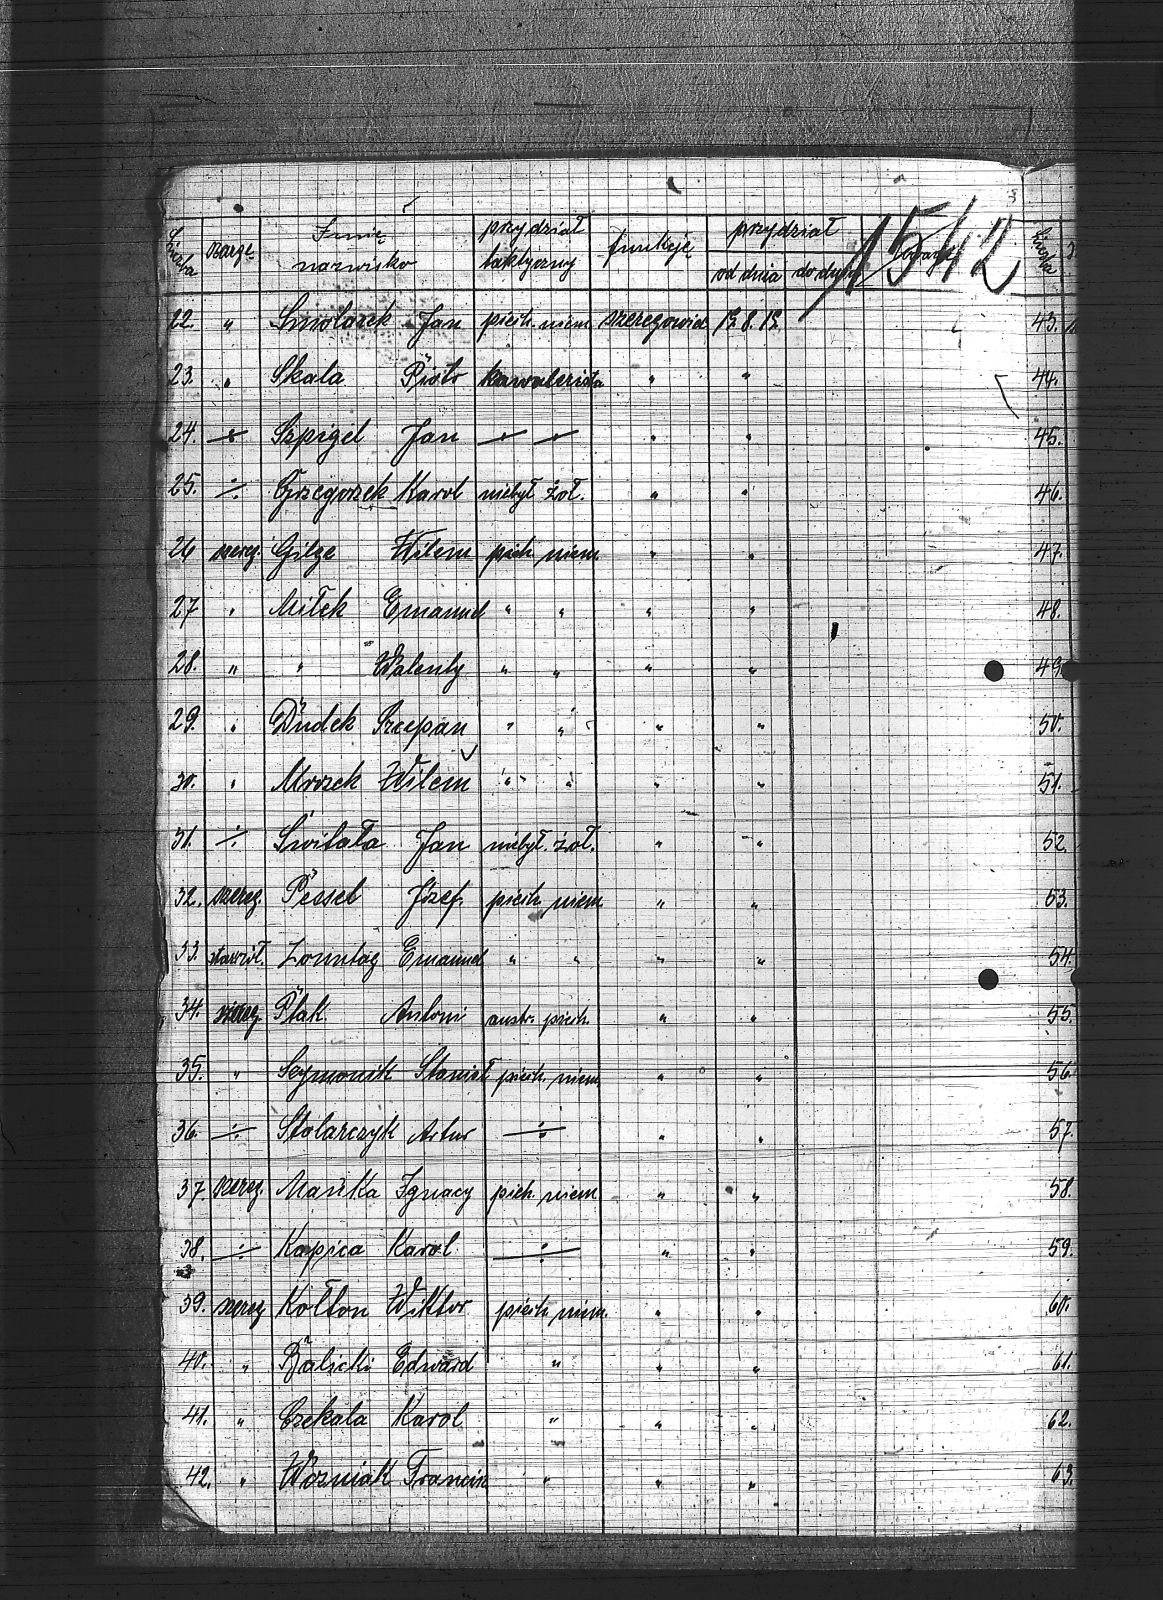 Liczba szarże Imię nazwisko przydział taktyczny funkcje przydział od dnia do dnia 1542 Liczba
22. " Smolarek Jan piech. niem. szeregowiec 19.8.19.
23. " Skala Piotr kawalerista " "
24. Szpigel Jan " "
25. ÷ Grzegorzek Karol niebył żoł. " "
26 szereg. Gilge Wilem piech. niem. " "
27 " Miłek Emanuel " " " "
28. " " Walenty " " " "
29. " Dudek Szczepan " " " "
30. " Mrozek Wilem " " " "
31. ÷ Świtała Jan niebył. żoł. " "
32. szereg. Pessel Józef piech. niem. " "
33. Zonntag Emanuel " " " "
34. szereg. Ptak Antoni austr. piech. " "
35. " Szymonik Stanisł piech. niem. " "
36. ÷ Stolarczyk Artur ÷ " "
37 szereg. Mańka Ignacy piech. niem. " "
38. ÷ Kapica Karol ÷ " "
39. szereg Kołton Wiktor piech. niem. " "
40. " Balicki Edward " " "
41. " Czekala Karol " " "
42. " Woźniak Francisz " " "
43.
44.
45.
46.
47.
48.
49.
50.
51.
52.
53.
54.
55.
56.
57.
58.
59.
60.
61.
62.
63.